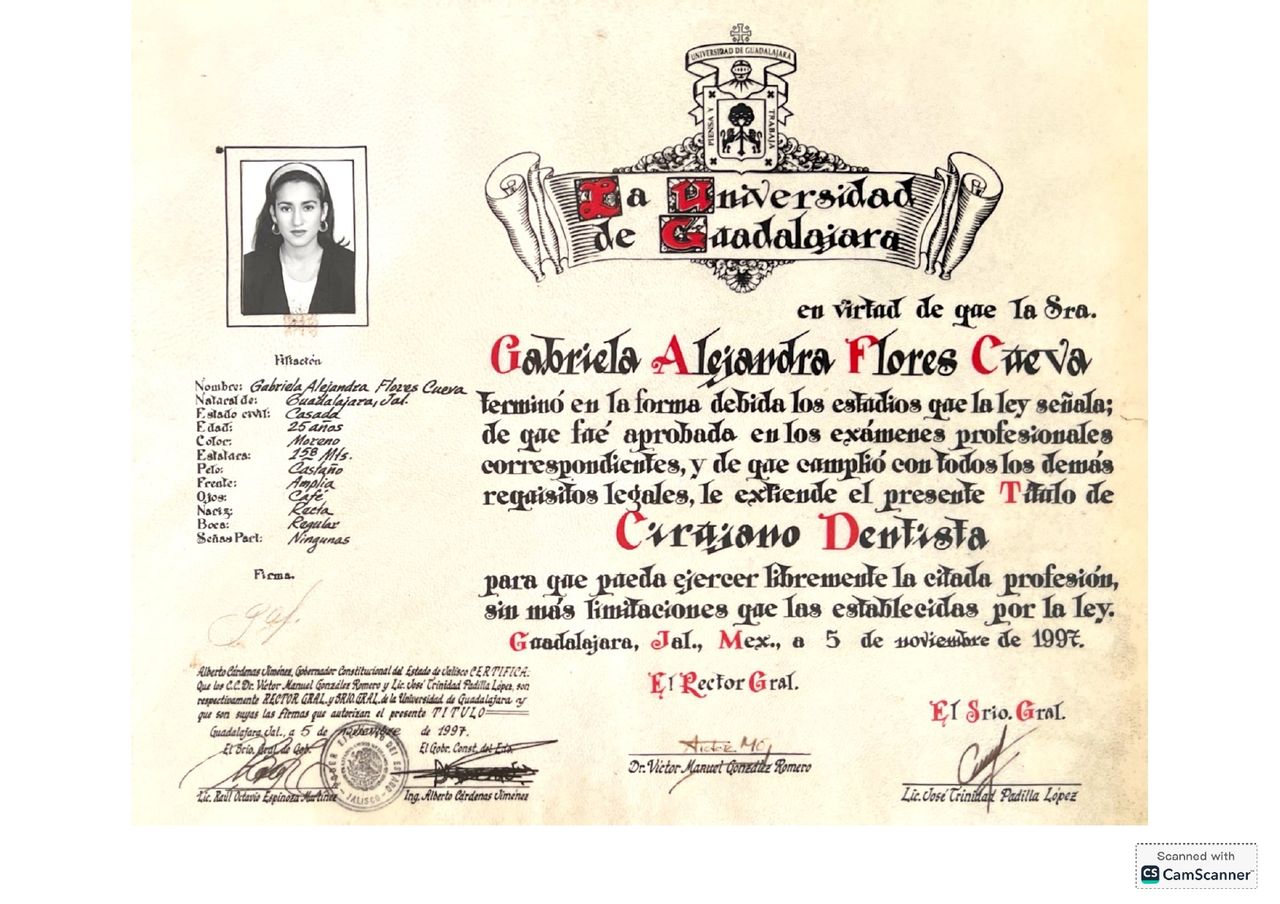 UNIVERSIDAD DE GUADALAJARA
PIENSA Y TRABAJA
La Universidad
de Guadalajara
en virtud de que la Sra.
Gabriela Alejandra Flores Cueva
terminó en la forma debida los estudios que la ley señala;
de que fué aprobada en los exámenes profesionales
correspondientes, y de que cumplió con todos los demás
requisitos legales, le extiende el presente Título de
Cirujano Dentista
para que pueda ejercer libremente la citada profesión,
sin más limitaciones que las establecidas por la ley.
Guadalajara, Jal., Mex., a 5 de noviembre de 1997.
El Rector Gral.
El Srio. Gral.
Dr. Víctor Manuel González Romero
Lic. José Trinidad Padilla López
Filiación
Nombre: Gabriela Alejandra Flores Cueva
Natural de: Guadalajara, Jal.
Estado civil: Casada
Edad: 25 años
Color: Moreno
Estatura: 158 Mts.
Pelo: Castaño
Frente: Amplia
Ojos: Café
Nariz: Recta
Boca: Regular
Señas Part: Ningunas
Firma.
Alberto Cárdenas Jiménez, Gobernador Constitucional del Estado de Jalisco CERTIFICA:
Que los C.C. Dr. Víctor Manuel González Romero y Lic. José Trinidad Padilla López, son
respectivamente RECTOR GRAL. y SRIO. GRAL. de la Universidad de Guadalajara y
que son suyas las firmas que autorizan el presente TITULO
Guadalajara, Jal., a 5 de noviembre de 1997.
El Srio. Gral. de Gob.
El Gobr. Const. del Edo.
Lic. Raúl Octavio Espinoza Martínez
Ing. Alberto Cárdenas Jiménez
JALISCO
Scanned with
CS CamScanner